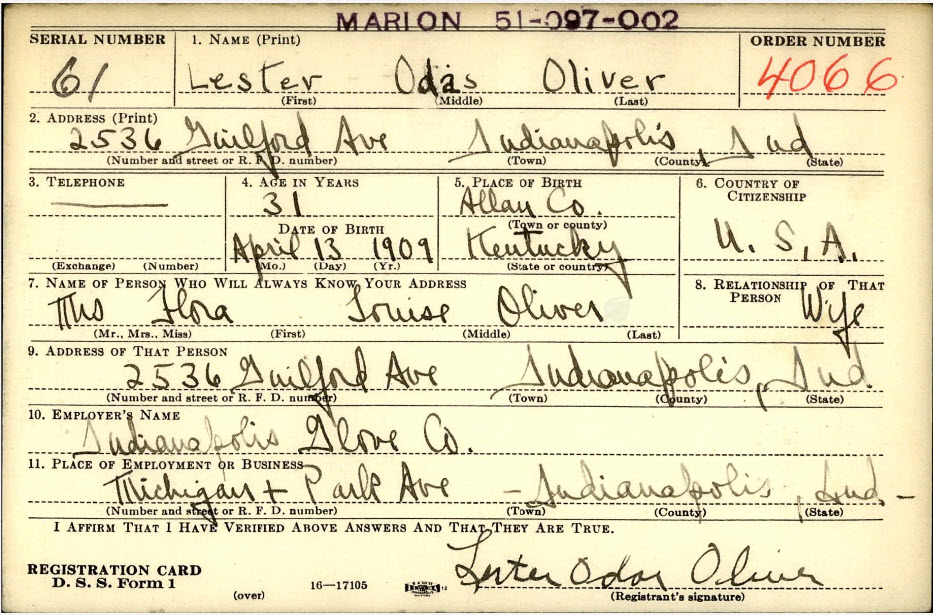 MARION 51-097-002
SERIAL NUMBER 1. NAME (Print) ORDER NUMBER
61 Lester Odas Oliver 4066
(First) (Middle) (Last)
2. ADDRESS (Print)
2536 Guilford Ave Indianapolis, Ind
(Number and street or R. F. D. number) (Town) (County) (State)
3. TELEPHONE 4. AGE IN YEARS 5. PLACE OF BIRTH 6. COUNTRY OF CITIZENSHIP
31 Allan Co.
DATE OF BIRTH (Town or county)
April 13 1909 Kentucky U. S. A.
(Exchange) (Number) (Mo.) (Day) (Yr.) (State or country)
7. NAME OF PERSON WHO WILL ALWAYS KNOW YOUR ADDRESS 8. RELATIONSHIP OF THAT PERSON
Mrs Flora Louise Oliver Wife
(Mr., Mrs., Miss) (First) (Middle) (Last)
9. ADDRESS OF THAT PERSON
2536 Guilford Ave Indianapolis, Ind.
(Number and street or R. F. D. number) (Town) (County) (State)
10. EMPLOYER'S NAME
Indianapolis Glove Co.
11. PLACE OF EMPLOYMENT OR BUSINESS
Michigan + Park Ave - Indianapolis, Ind. -
(Number and street or R. F. D. number) (Town) (County) (State)
I AFFIRM THAT I HAVE VERIFIED ABOVE ANSWERS AND THAT THEY ARE TRUE.
Lester Odas Oliver
REGISTRATION CARD
D. S. S. Form 1 16—17105
(over) (Registrant's signature)